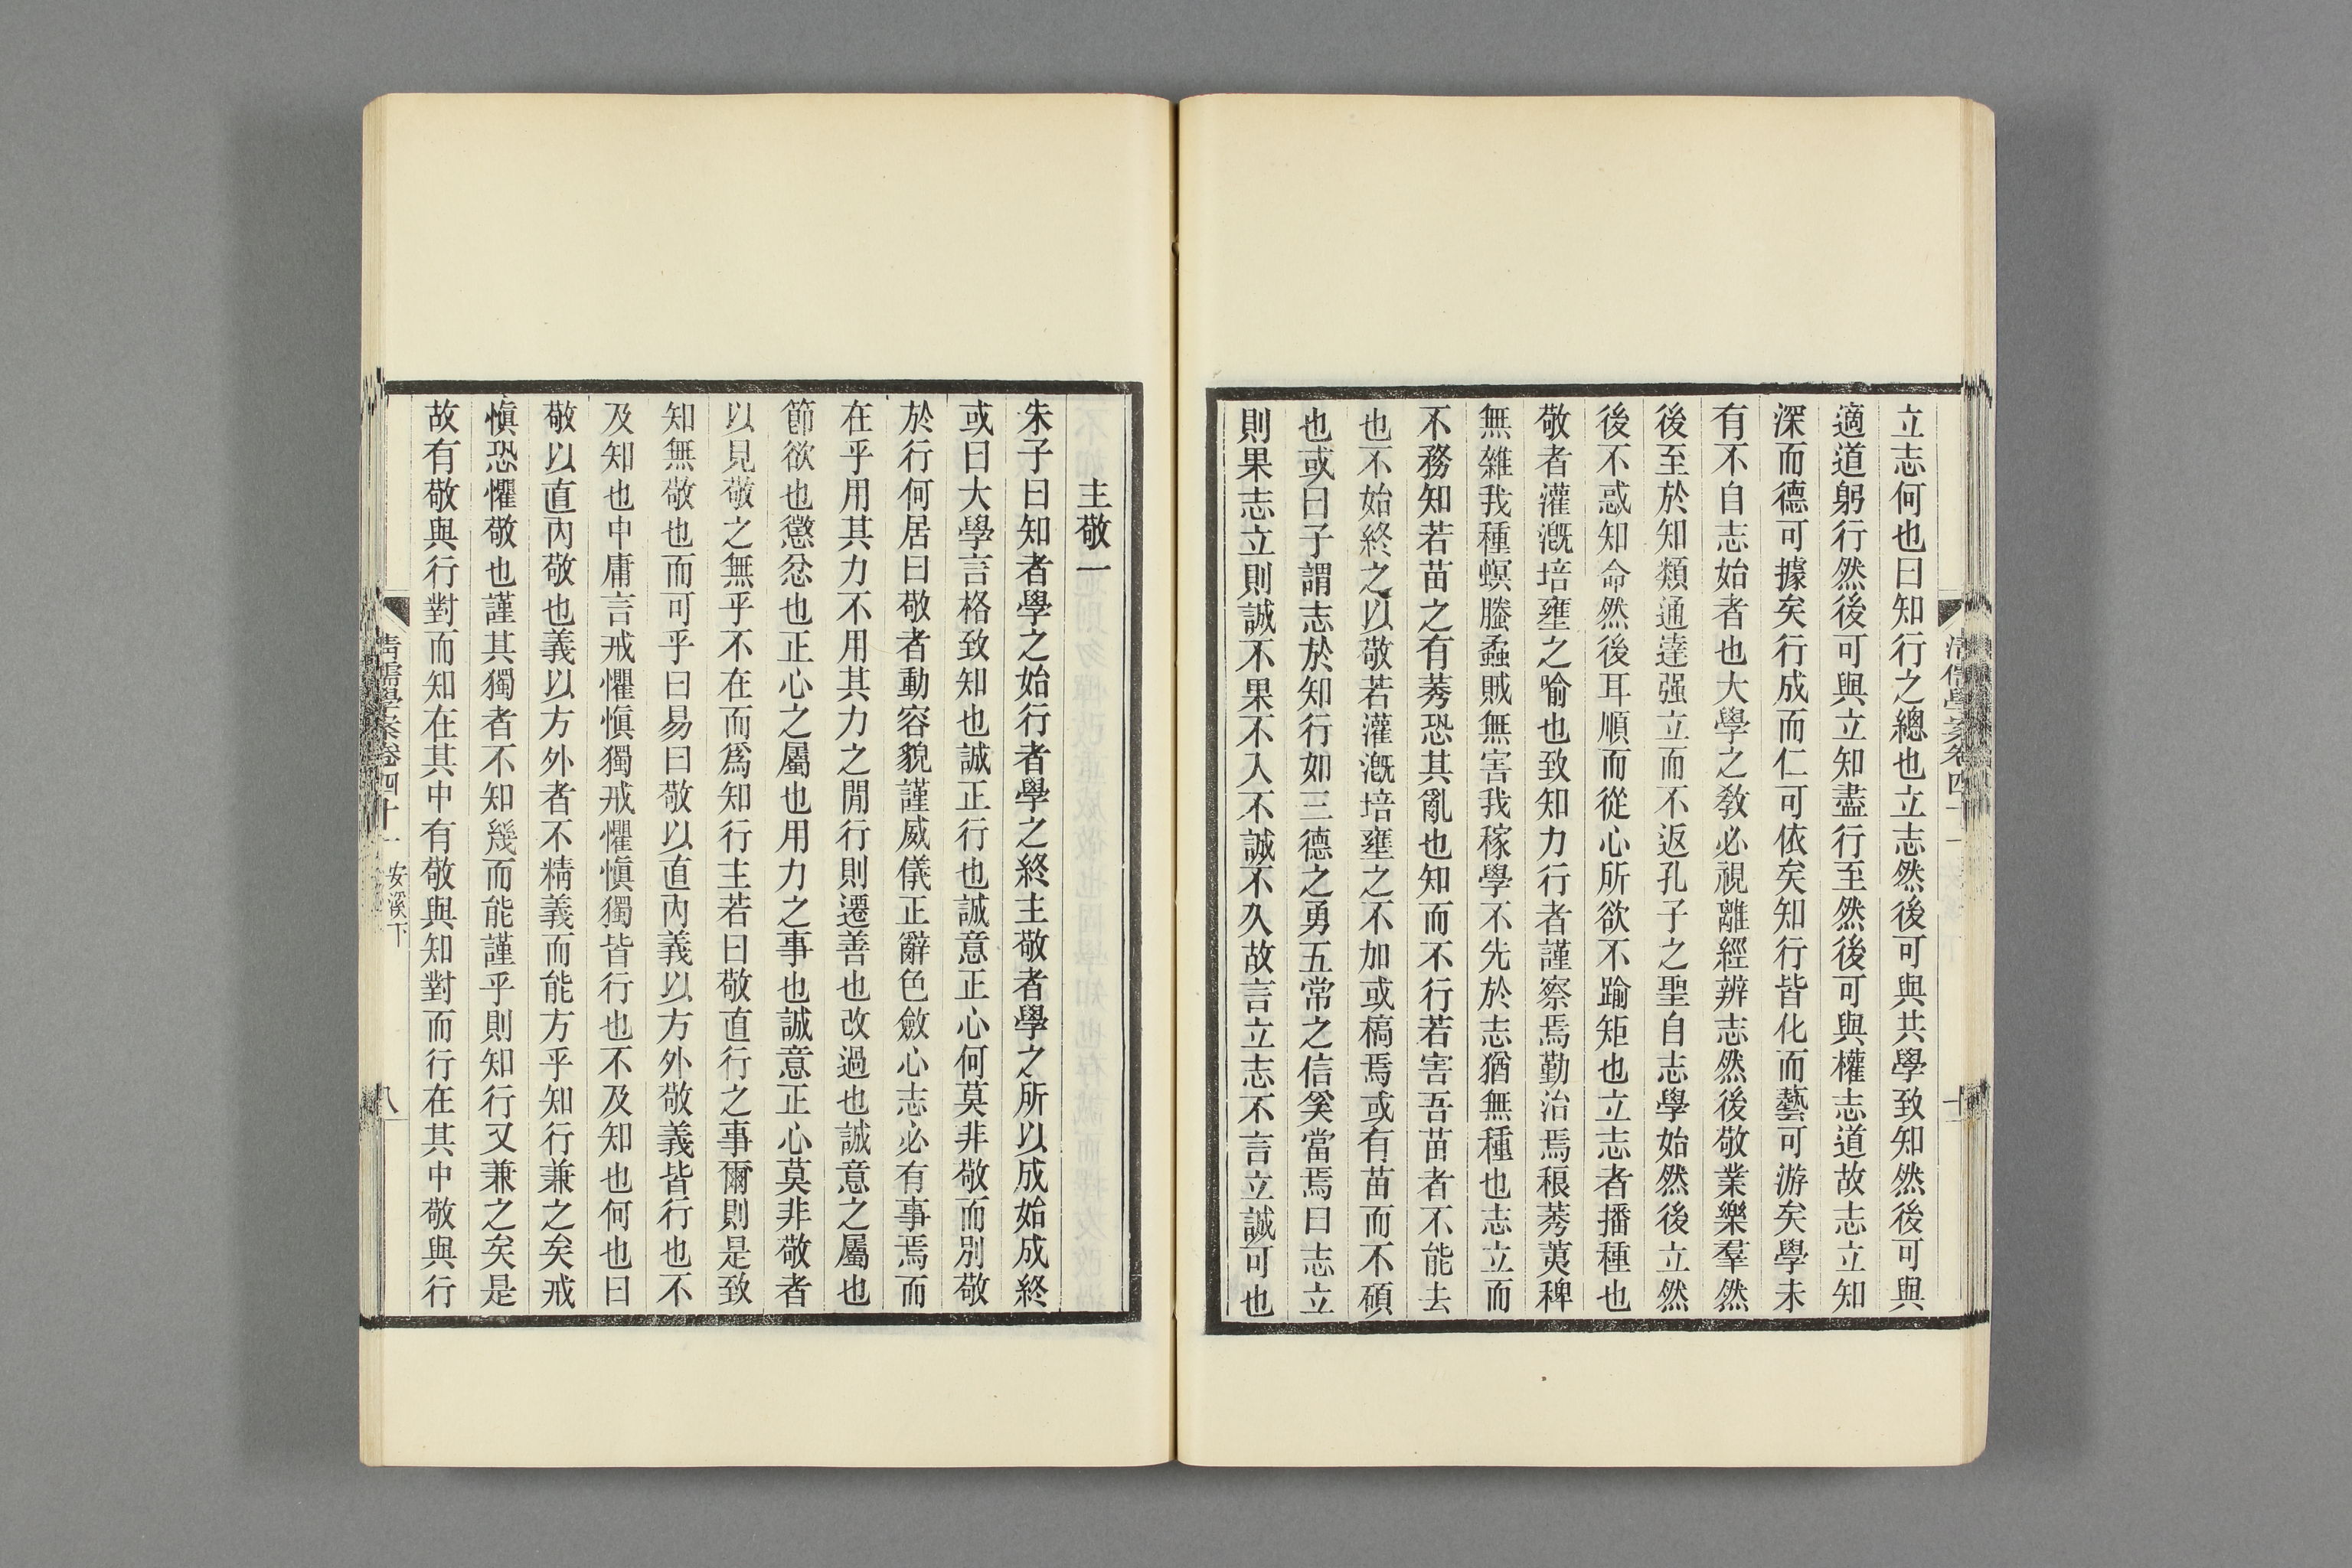 立志何也曰知行之總也立志然後可與共學致知然後可與
適道躬行然後可與立知盡行至然後可與權志道故志立知
深而德可據矣行成而仁可依矣知行皆化而藝可游矣學未
有不自志始者也大學之敎必視離經辨志然後敬業樂羣然
後至於知類通達强立而不返孔子之聖自志學始然後立然
後不惑知命然後耳順而從心所欲不踰矩也立志者播種也
敬者灌漑培壅之喻也致知力行者謹察焉勤治焉稂莠荑稗
無雜我種螟螣蟊賊無害我稼學不先於志猶無種也志立而
不務知若苗之有莠恐其亂也知而不行若害吾苗者不能去
也不始終之以敬若灌漑培壅之不加或槁焉或有苗而不碩
也或曰子謂志於知行如三德之勇五常之信奚當焉曰志立
則果志立則誠不果不入不誠不久故言立志不言立誠可也
主敬一
朱子曰知者學之始行者學之終主敬者學之所以成始成終
或曰大學言格致知也誠正行也誠意正心何莫非敬而別敬
於行何居曰敬者動容貌謹威儀正辭色斂心志必有事焉而
在乎用其力不用其力之閒行則遷善也改過也誠意之屬也
節欲也懲忿也正心之屬也用力之事也誠意正心莫非敬者
以見敬之無乎不在而爲知行主若曰敬直行之事爾則是致
知無敬也而可乎曰易曰敬以直內義以方外敬義皆行也不
及知也中庸言戒懼愼獨戒懼愼獨皆行也不及知也何也曰
敬以直內敬也義以方外者不精義而能方乎知行兼之矣戒
愼恐懼敬也謹其獨者不知幾而能謹乎則知行又兼之矣是
故有敬與行對而知在其中有敬與知對而行在其中敬與行
清儒學案卷四十一
安溪下
八